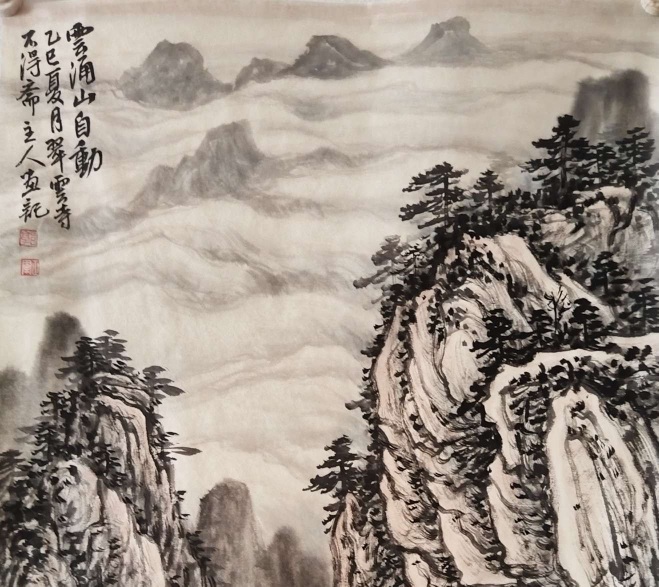 雲涌山自動
乙巳夏月翠雲寺
不得齋主人画記